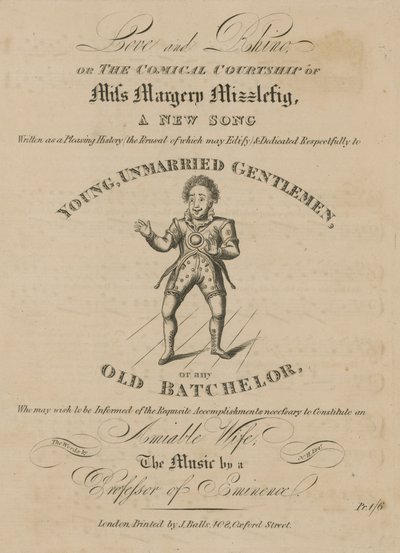 Love and Rhino,
OR THE COMICAL COURTSHIP OF
Miſs Margery Mizzlefig,
A NEW SONG
Written as a Pleasing History (the Perusal of which may Edify) & Dedicated Respectfully to
YOUNG, UNMARRIED GENTLEMEN,
or any
OLD BATCHELOR,
Who may wish to be Informed of the Requisite Accomplishments neceſsary to Constitute an
Amiable Wife,
The Words by
The Music by a
Professor of Eminence.
Pr. 1/6
London, Printed by J. Balls, 408, Oxford Street.